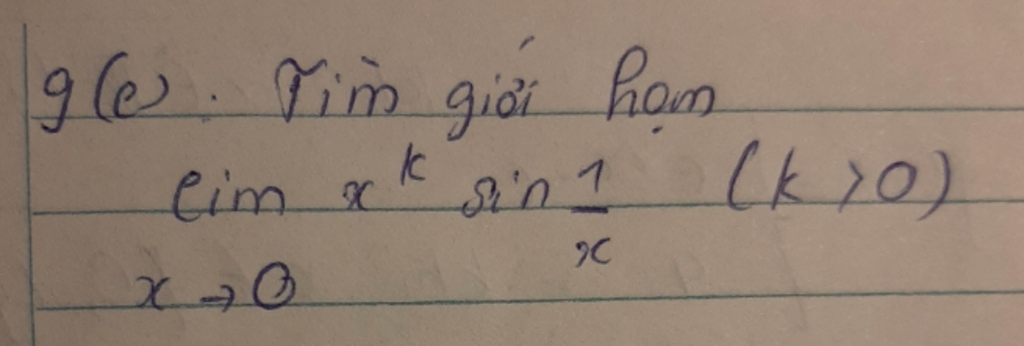 9(e). Tìm giới hạm
lim x^k sin 1/x (k > 0)
x → 0